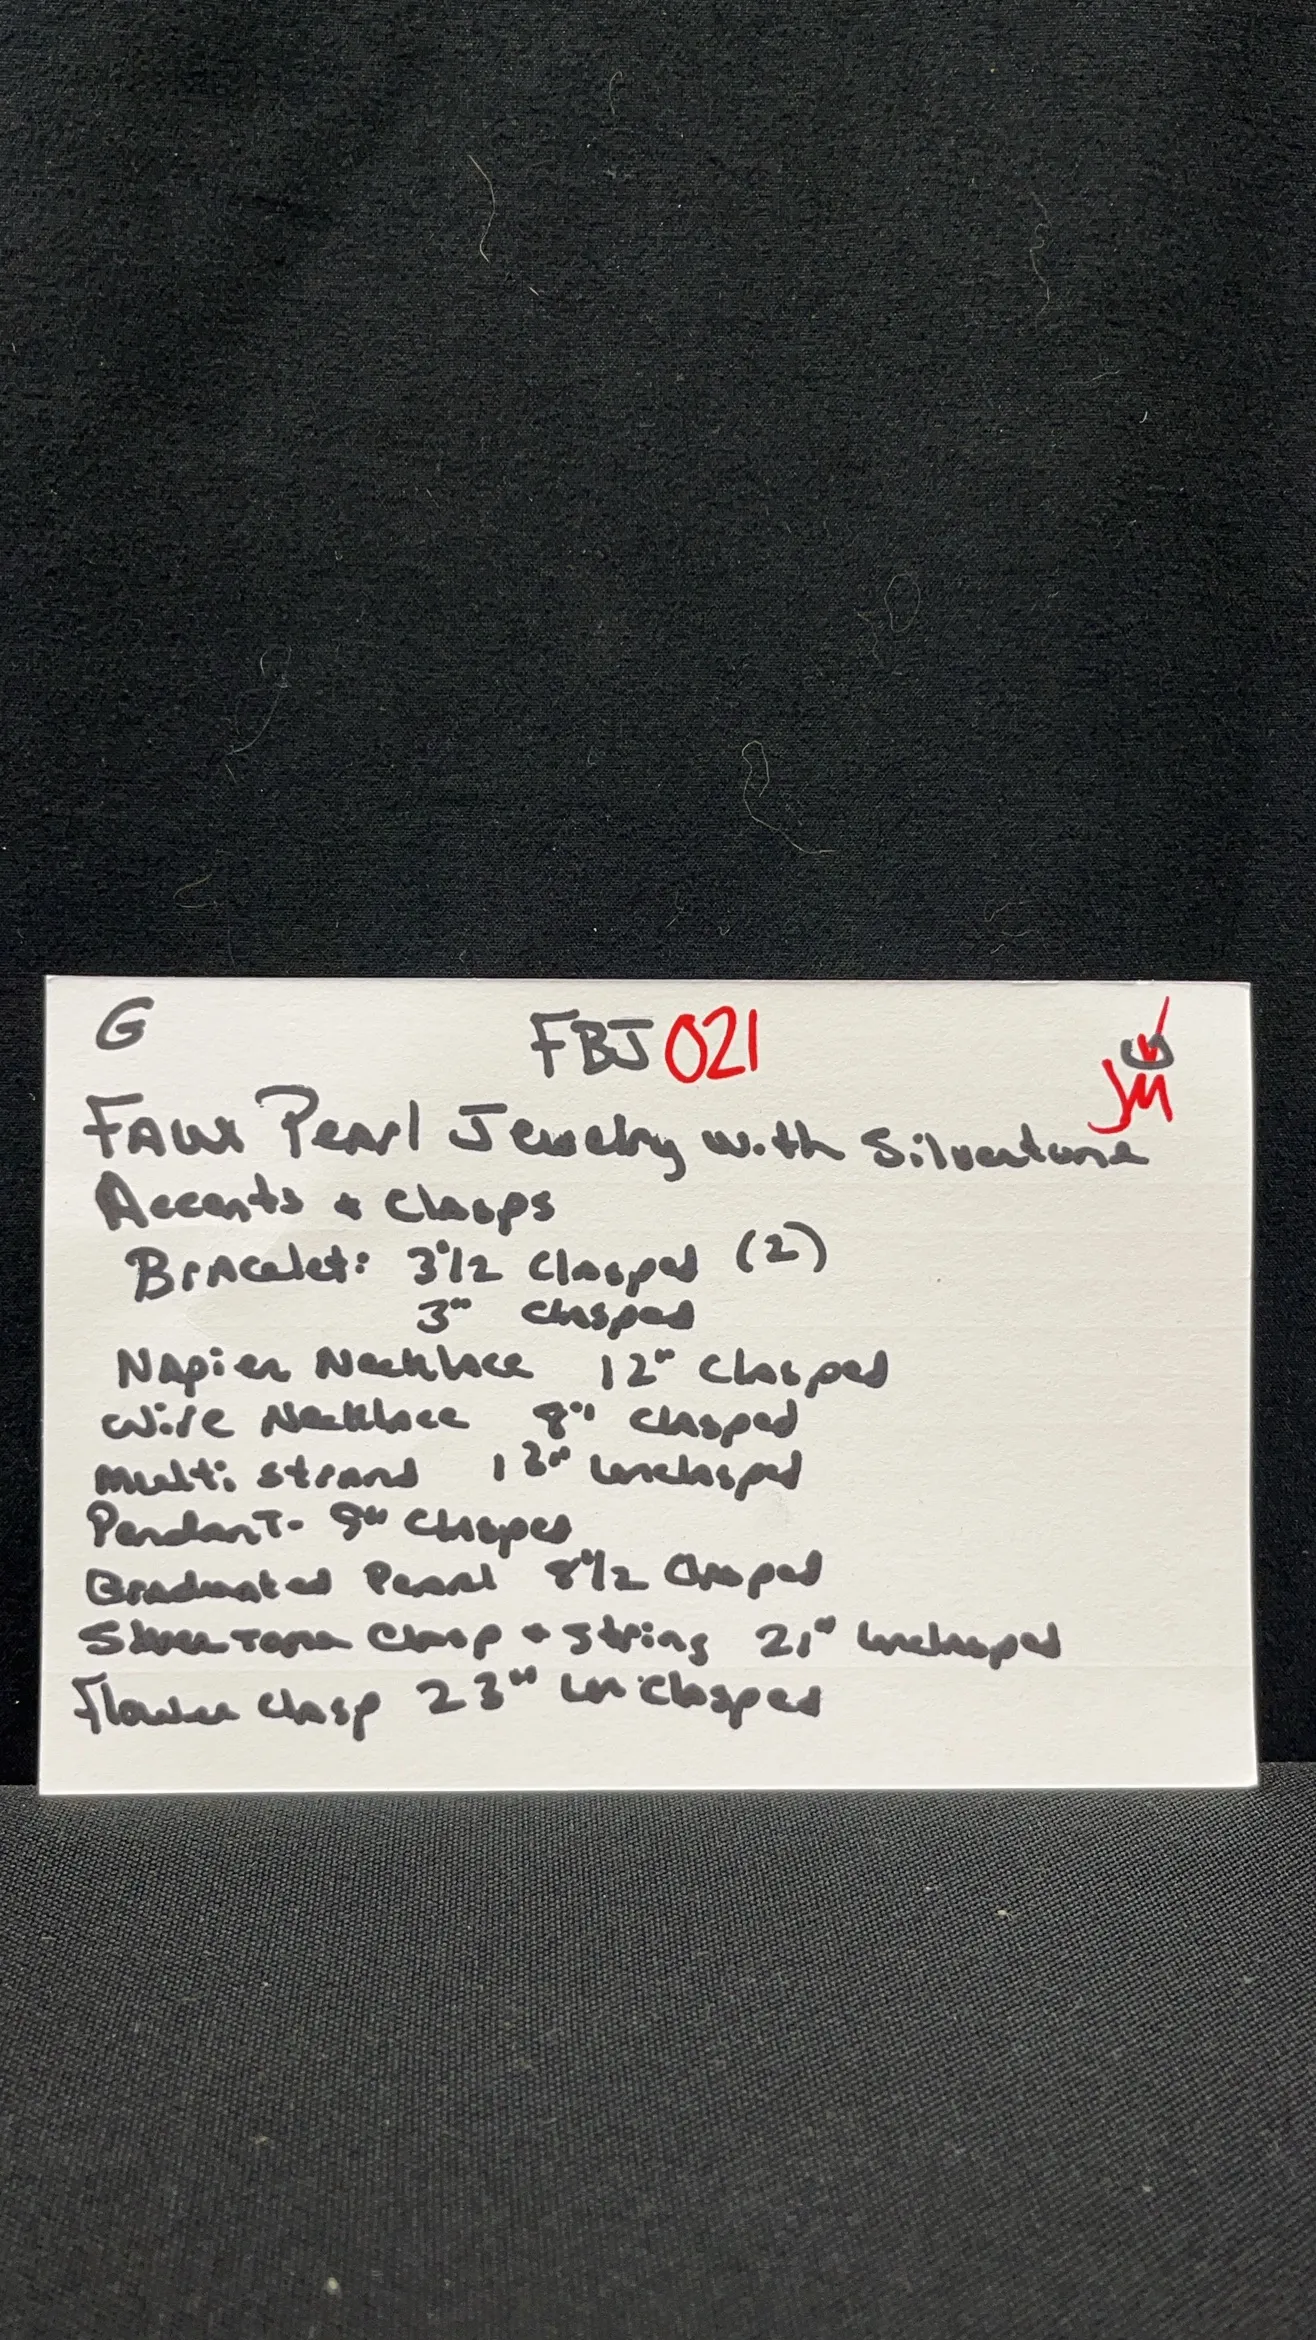 G FBJ 021 JM
Faux Pearl Jewelry with Silvertone
Accents + Clasps
Bracelet: 3"1/2 Clasped (2)
3" Clasped
Napier Necklace 12" Clasped
Wire Necklace 8" Clasped
Multi strand 18" unclasped
Pendant- 9" Clasped
Graduated Pearl 8"1/2 Clasped
Silvertone Clasp + string 21" unclasped
Flower Clasp 23" unclasped